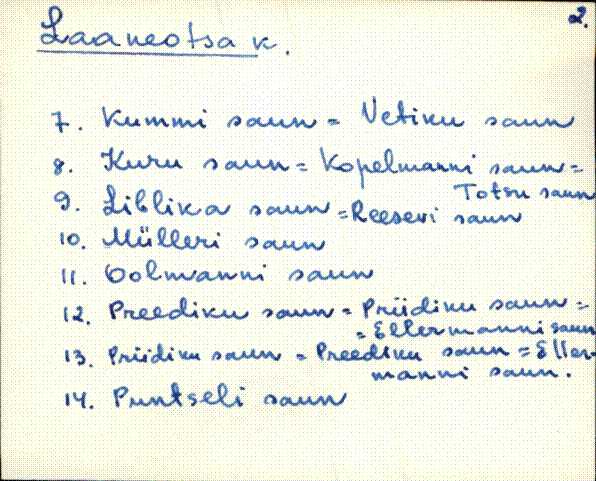 2.
Laaneotsa k.
7. Kummi saun = Vetiku saun
8. Kuru saun = Kopelmanni saun =
Totsu saun
9. Liblika saun = Reesevi saun
10. Mülleri saun
11. Oolmanni saun
12. Preediku saun = Priidiku saun =
= Ellermanni saun
13. Priidiku saun = Preediku saun = Eller-
manni saun.
14. Puntseli saun